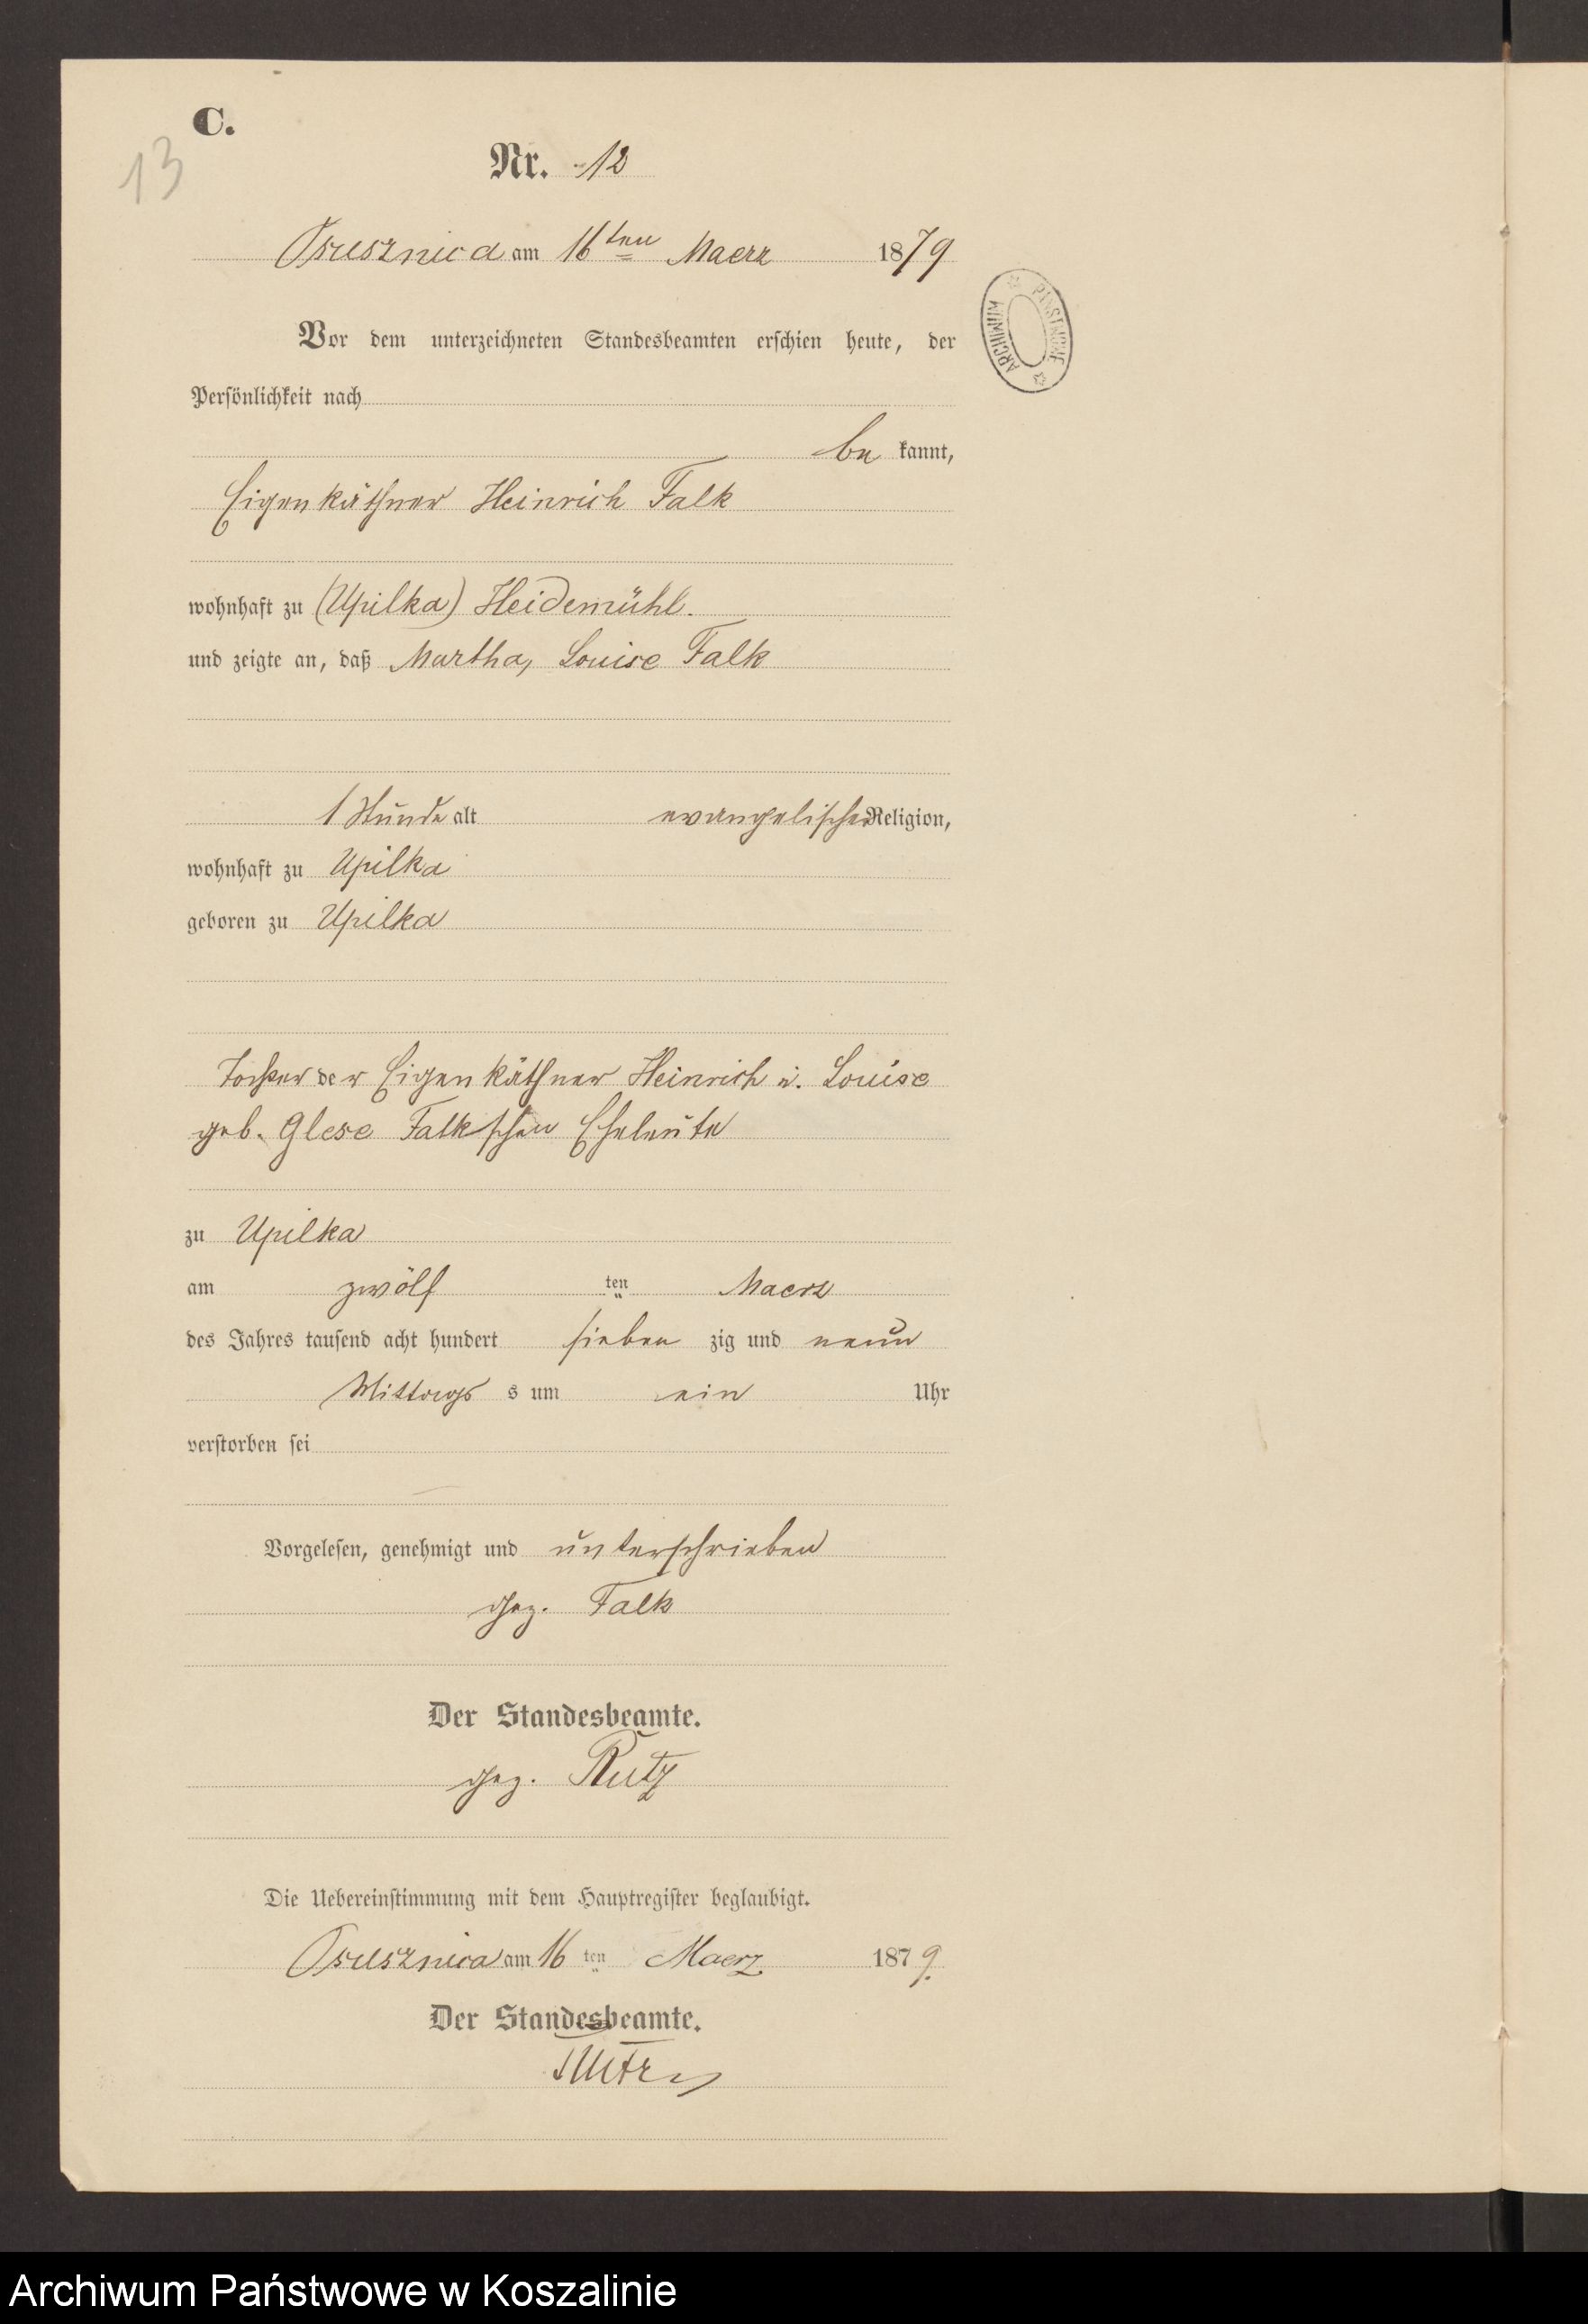 C.
13
Nr. 12
Osusznica am 16ten Maerz 1879
Vor dem unterzeichneten Standesbeamten erschien heute, der
Persönlichkeit nach
be kannt,
Eigenkäthner Heinrich Falk
wohnhaft zu (Upilka) Heidemühl.
und zeigte an, daß Martha, Louise Falk
1 Stunde alt evangelischer Religion,
wohnhaft zu Upilka
geboren zu Upilka
Tochter der Eigenkäthner Heinrich u. Louise
geb. Glese Falkschen Eheleute
zu Upilka
am zwölf ten Maerz
des Jahres tausend acht hundert sieben zig und neun
Mittags s um ein Uhr
verstorben sei
Vorgelesen, genehmigt und unterschrieben
gez. Falk
Der Standesbeamte.
gez. Rutz
Die Uebereinstimmung mit dem Hauptregister beglaubigt.
Osusznica am 16 ten Maerz 1879.
Der Standesbeamte.
Rutz
ARCHIWUM PAŃSTWOWE
Archiwum Państwowe w Koszalinie